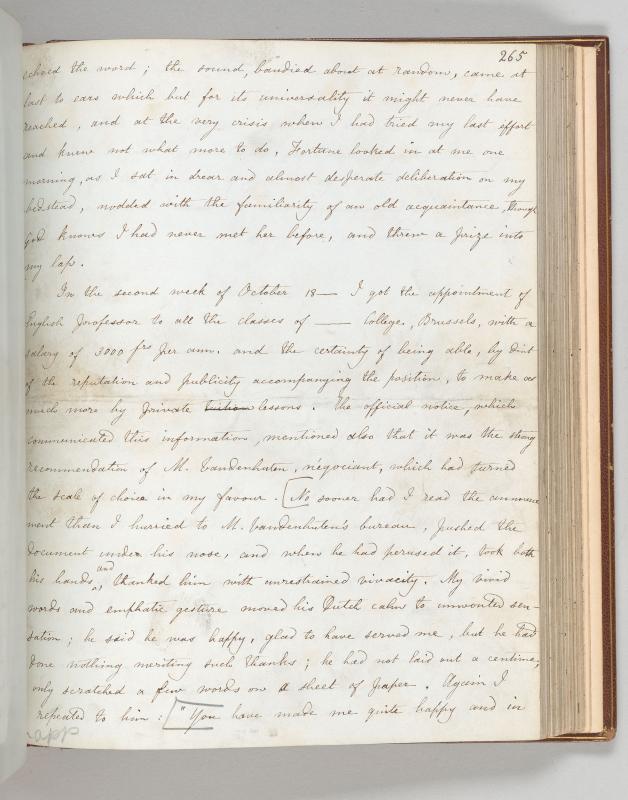 265
echoed the word ; the sound, bandied about at random, came at
last to ears which but for its universality it might never have
reached, and at the very crisis when I had tried my last effort
and knew not what more to do, Fortune looked in at me one
morning, as I sat in drear and almost desperate deliberation on my
bedstead, nodded with the familiarity of an old acquaintance, though
God knows I had never met her before, and threw a prize into
my lap.
In the second week of October 18— I got the appointment of
English professor to all the classes of —— College, Brussels, with a
salary of 3000 frs per ann. and the certainty of being able, by dint
of the reputation and publicity accompanying the position, to make as
much more by private tuition lessons. The official notice, which
communicated this information, mentioned also that it was the strong
recommendation of M. Vandenhuten, négociant, which had turned
the scale of choice in my favour. [No sooner had I read the announce
ment than I hurried to M. Vandenhuten's bureau, pushed the
document under his nose, and when he had perused it, took both
his hands, and thanked him with unrestrained vivacity. My vivid
words and emphatic gesture moved his Dutch calm to unwonted sen-
sation ; he said he was happy, glad to have served me, but he had
done nothing meriting such thanks ; he had not laid out a centime,
only scratched a few words on a sheet of paper. Again I
repeated to him : ["You have made me quite happy and in